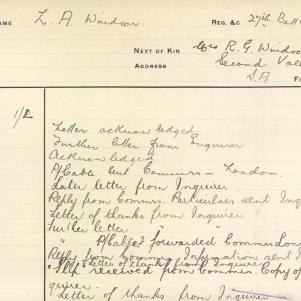 NAME L. A. Windsor. REG. &C 27th Batt
NEXT OF KIN Mrs R. G. Windsor
ADDRESS Second Val
S.A
1/2
Letter acknowledged.
Further letter from Enquirer
Acknowledged
P/Cable sent Commrs - London.
Later letter from Enquirer.
Reply from Commrs. Particulars sent Inq
Letter of thanks from Inquirer
Further letter
" P/Cable forwarded Commrs Lon
Reply from Commrs. Information sent I
Letter of thanks from Inquirer
received from Commrs. Copy of
quirer.
Letter of thanks from